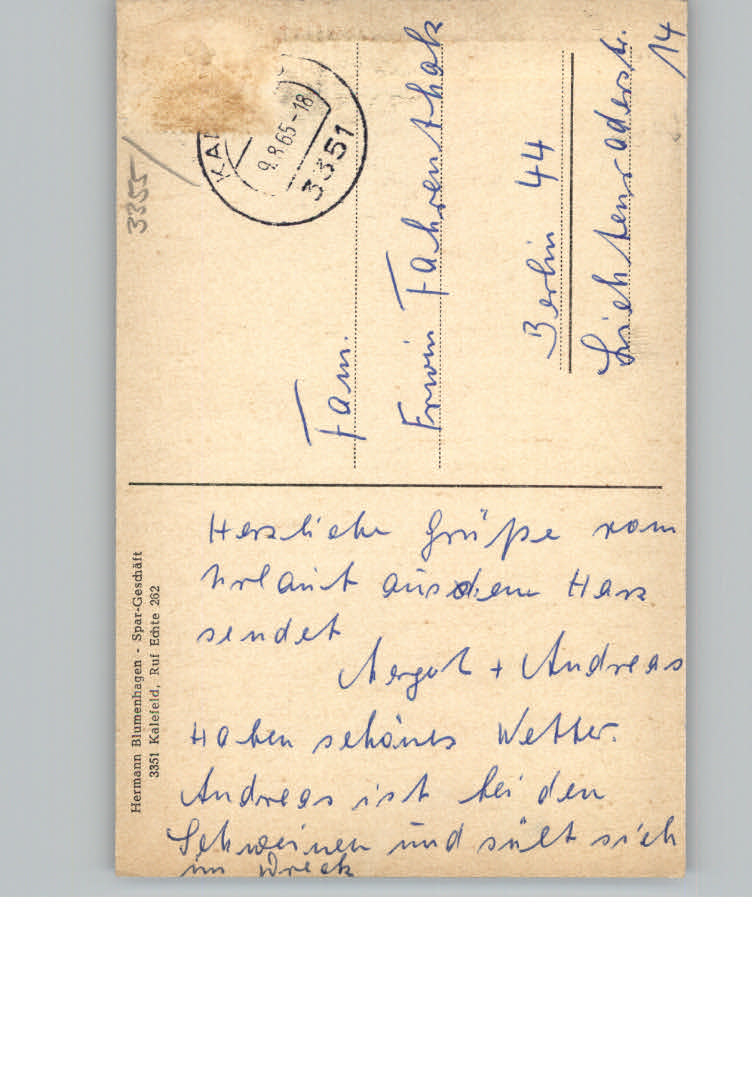 Herzliche Grüße vom
Urlaub aus dem Harz
sendet
Margot + Andreas
Haben schönes Wetter.
Andreas ist bei den
Schweinen und sült sich
im Dreck
Hermann Blumenhagen - Spar-Geschäft
3351 Kalefeld, Ruf Echte 262
3355/
9.8.65-18
3351
Fam.
Erwin Fahrenthak
Berlin 44
Lichtenraderstr. 14